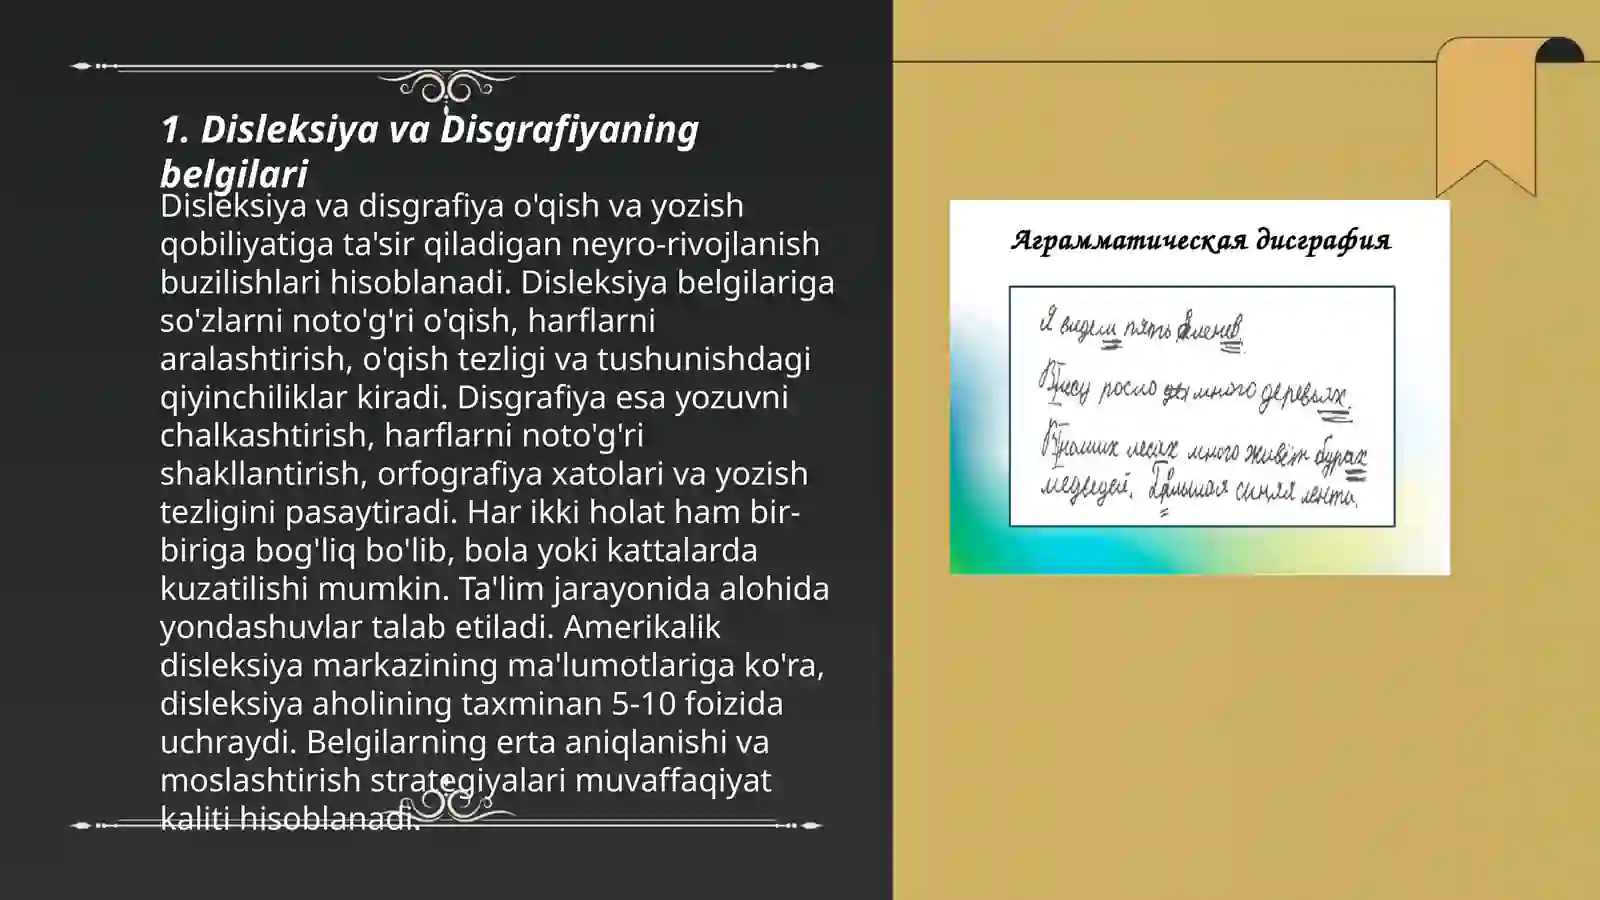 1. Disleksiya va Disgrafiyaning
belgilari
Disleksiya va disgrafiya o'qish va yozish
qobiliyatiga ta'sir qiladigan neyro-rivojlanish
buzilishlari hisoblanadi. Disleksiya belgilariga
so'zlarni noto'g'ri o'qish, harflarni
aralashtirish, o'qish tezligi va tushunishdagi
qiyinchiliklar kiradi. Disgrafiya esa yozuvni
chalkashtirish, harflarni noto'g'ri
shakllantirish, orfografiya xatolari va yozish
tezligini pasaytiradi. Har ikki holat ham bir-
biriga bog'liq bo'lib, bola yoki kattalarda
kuzatilishi mumkin. Ta'lim jarayonida alohida
yondashuvlar talab etiladi. Amerikalik
disleksiya markazining ma'lumotlariga ko'ra,
disleksiya aholining taxminan 5-10 foizida
uchraydi. Belgilarning erta aniqlanishi va
moslashtirish strategiyalari muvaffaqiyat
kaliti hisoblanadi.
Аграмматическая дисграфия
Я видели пять
росло много деревьях.
лесах много живёт бурах
медведей. синяя лента.